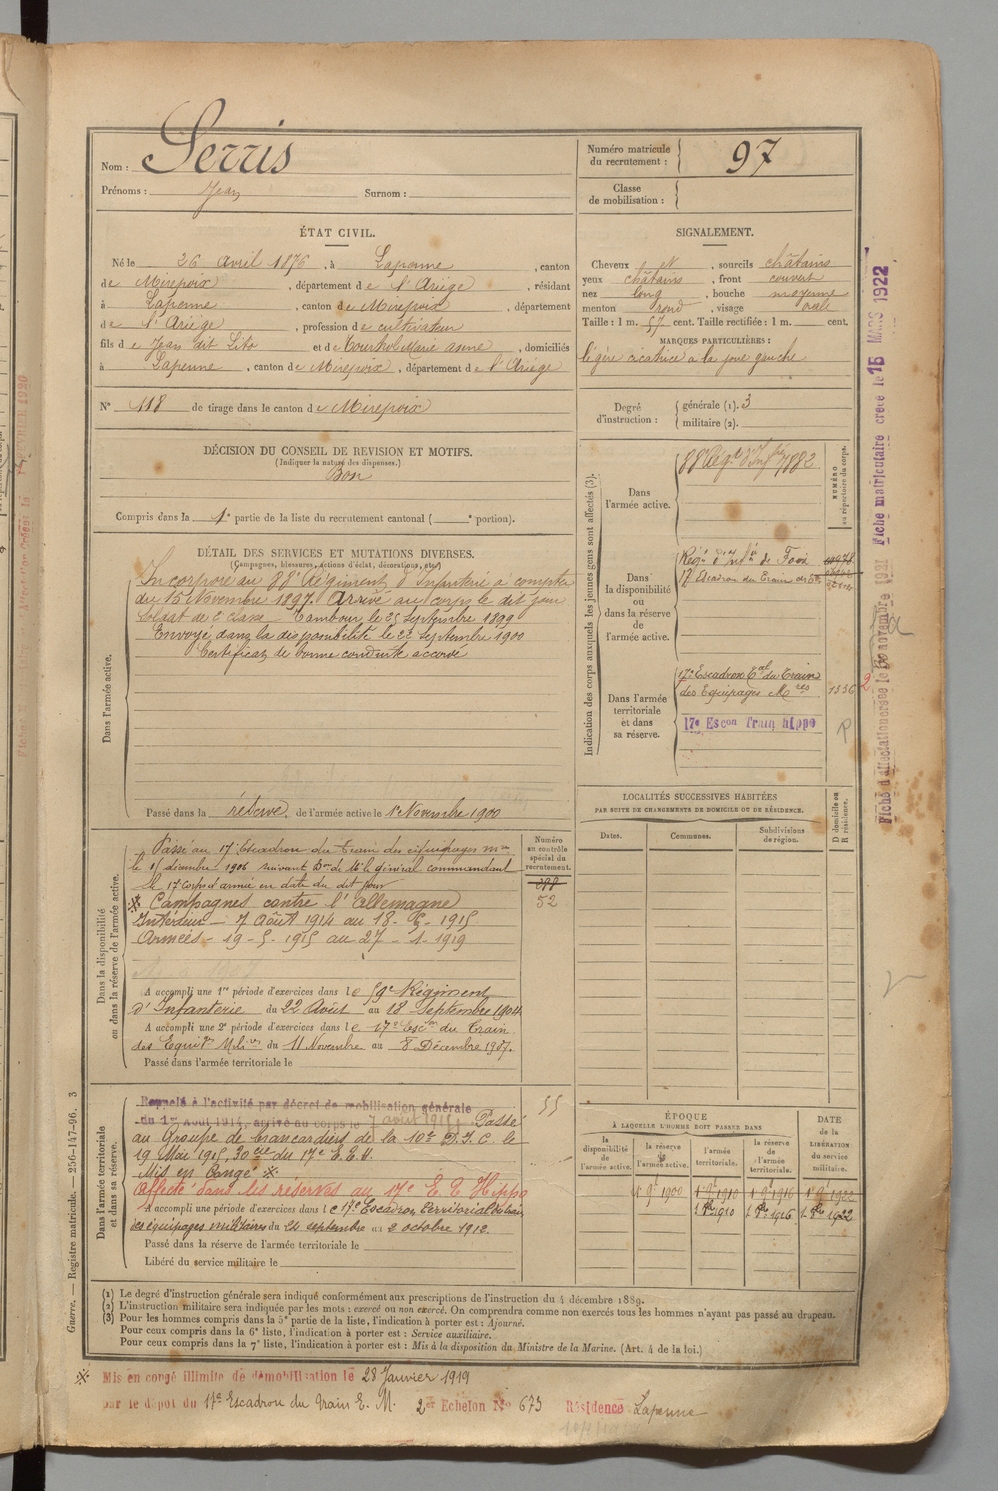 Nom : Serris
Prénoms : Jean Surnom :
Numéro matricule du recrutement : 97
Classe de mobilisation :
ÉTAT CIVIL.
Né le 26 avril 1876, à Lapenne, canton
de Mirepoix, département de l'Ariège, résidant
à Lapenne, canton de Mirepoix, département
de l'Ariège, profession de cultivateur
fils de Jean dit Lite et de Tourhol Marie anne, domiciliés
à Lapenne, canton de Mirepoix, département de l'Ariège
N° 118 de tirage dans le canton de Mirepoix
SIGNALEMENT.
Cheveux et, sourcils châtains
yeux châtains, front couvert
nez long, bouche moyenne
menton rond, visage ovale
Taille : 1 m. 57 cent. Taille rectifiée : 1 m. cent.
MARQUES PARTICULIÈRES :
légère cicatrice a la joue gauche
Degré d'instruction : générale (1). 3
militaire (2).
DÉCISION DU CONSEIL DE REVISION ET MOTIFS.
(Indiquer la nature des dispenses.)
Bon
Compris dans la 1e partie de la liste du recrutement cantonal ( e portion).
DÉTAIL DES SERVICES ET MUTATIONS DIVERSES.
(Campagnes, blessures, actions d'éclat, décorations, etc.)
Dans l'armée active.
Incorporé au 88e Régiment d'Infanterie a compter
du 15 Novembre 1897. Arrivé au corps le dit jour
Soldat de 2e classe Tambour le 25 septembre 1899
Envoyé dans la disponibilité le 22 septembre 1900
Certificat de bonne conduite accordé
Passé dans la réserve de l'armée active le 1er Novembre 1900
Indication des corps auxquels les jeunes gens sont affectés (3).
NUMÉRO au répertoire du corps.
Dans l'armée active.
88e Régt d'Infie 7882
Dans la disponibilité ou dans la réserve de l'armée active.
Régt d'Infie de Foix
17e Escadron du Train des
Dans l'armée territoriale et dans sa réserve.
17e Escadron tal du Train
des Equipages Mres 1336
17e Escon Train hippo
R
LOCALITÉS SUCCESSIVES HABITÉES
PAR SUITE DE CHANGEMENTS DE DOMICILE OU DE RÉSIDENCE.
Dates. Communes. Subdivisions de région. D domicile ou R résidence.
Dans la disponibilité ou dans la réserve de l'armée active.
Numéro au contrôle spécial du recrutement.
52
Passé au 17e Escadron du Train des équipages mres
le 15 décembre 1906 suivant Don de Mr le général commandant
le 17e corps d'armée en date du dit jour
※ Campagnes contre l'Allemagne
Intérieur - 7 Août 1914 au 18 - 5 - 1915
Armées - 19 - 5 - 1915 au 27 - 1 - 1919
A accompli une 1re période d'exercices dans le 59e Régiment
d'Infanterie du 22 Août au 18 Septembre 1904
A accompli une 2e période d'exercices dans le 17e Escon du Train
des Equipes Milres du 11 Novembre au 8 Décembre 1907.
Passé dans l'armée territoriale le
Dans l'armée territoriale et dans sa réserve.
Rappelé à l'activité par décret de mobilisation générale
du 1er Août 1914, arrivé au corps le 7 août 1914 Passé
au Groupe de brancardiers de la 10e D.I.C. le
19 Mai 1915, 30e Cie du 17e E.T.
Mis en Congé ※
Affecté dans les réserves au 17e E T Hippo
A accompli une période d'exercices dans le 17e Escadron Territorial du train
des équipages militaires du 24 septembre au 2 octobre 1912.
Passé dans la réserve de l'armée territoriale le
Libéré du service militaire le
55
ÉPOQUE
À LAQUELLE L'HOMME DOIT PASSER DANS
la disponibilité de l'armée active. la réserve de l'armée active. l'armée territoriale. la réserve de l'armée territoriale. DATE de la LIBÉRATION du service militaire.
1er 9e 1900 1er 9e 1910 1er 9e 1916 1er 9e 1922
1er 8bre 1910 1er 8bre 1916 1er 8bre 1922
(1) Le degré d'instruction générale sera indiqué conformément aux prescriptions de l'instruction du 4 décembre 1889.
(2) L'instruction militaire sera indiquée par les mots : exercé ou non exercé. On comprendra comme non exercés tous les hommes n'ayant pas passé au drapeau.
(3) Pour les hommes compris dans la 5e partie de la liste, l'indication à porter est : Ajourné.
Pour ceux compris dans la 6e liste, l'indication à porter est : Service auxiliaire.
Pour ceux compris dans la 7e liste, l'indication à porter est : Mis à la disposition du Ministre de la Marine. (Art. 4 de la loi.)
※ Mis en congé illimité de démobilisation le 28 Janvier 1919
par le dépôt du 17e Escadron du Train E. M. 2e Echelon N° 673 Résidence Lapenne
Guerre. — Registre matricule. — 256-147-96. 3
Fiche matriculaire créée le 15 MARS 1922
Fiche d'affectation créée le novembre 1921